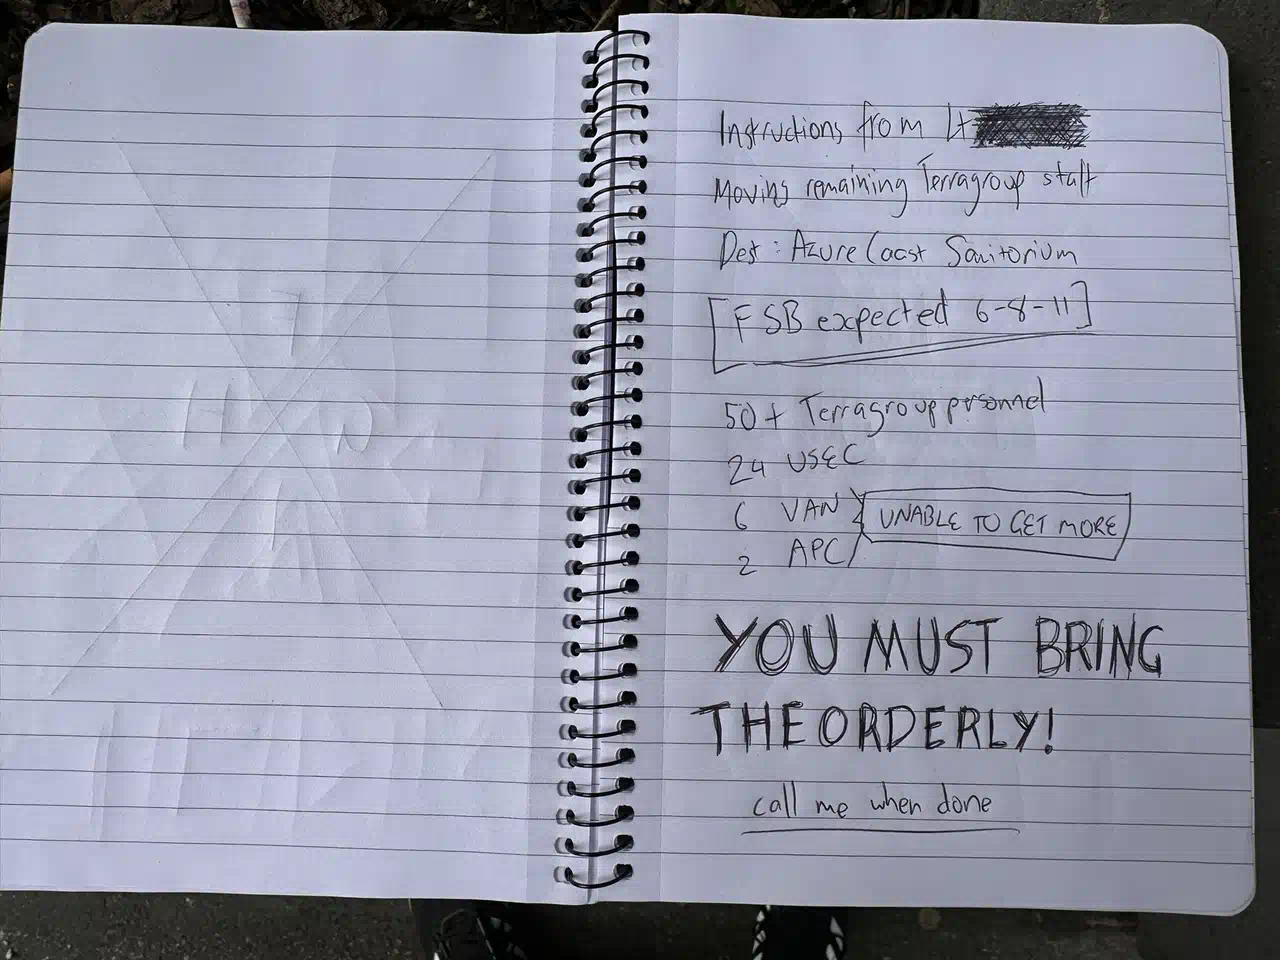 Instructions from Lt
Moving remaining Terragroup staff
Dest : Azure Coast Sanitorium
[FSB expected 6-8-11]
50+ Terragroup personnel
24 USEC
6 VAN
2 APC
UNABLE TO GET MORE
YOU MUST BRING
THE ORDERLY!
call me when done